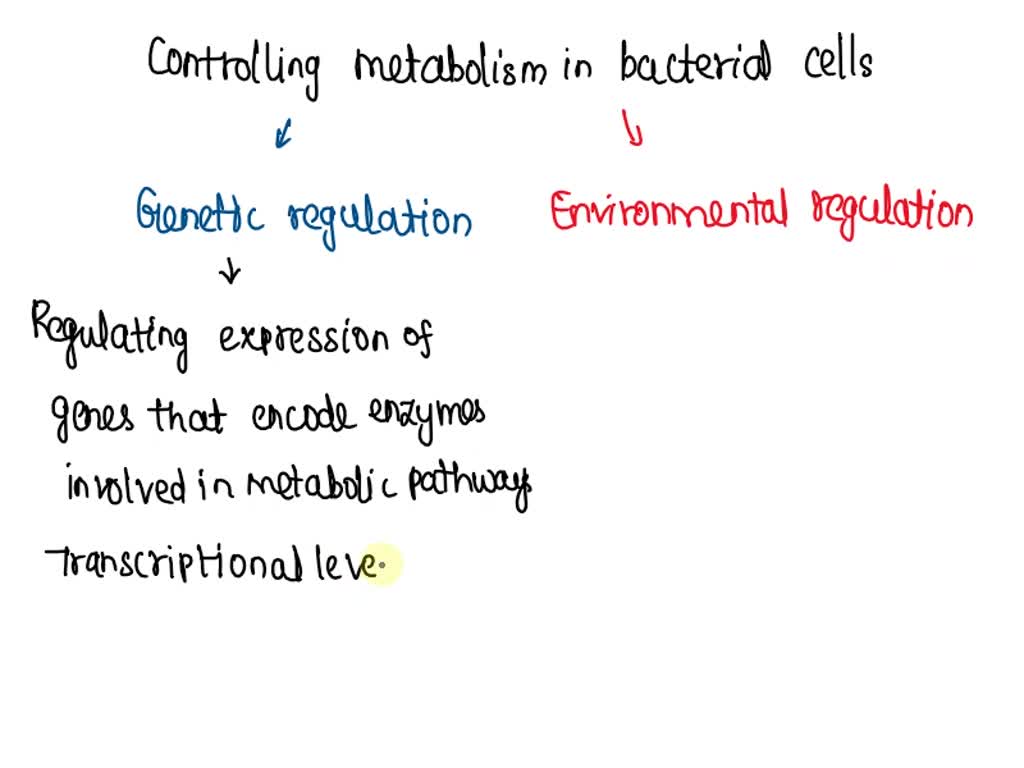 Controlling metabolism in bacterial cells
Genetic regulation
Environmental regulation
Regulating expression of
genes that encode enzymes
involved in metabolic pathways
Transcriptional leve